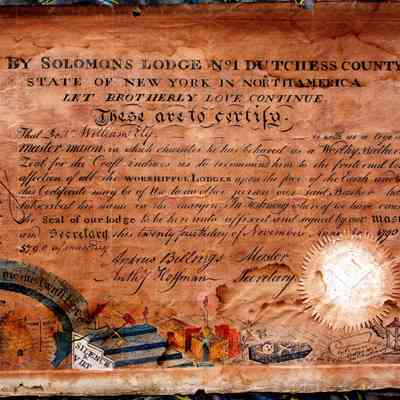 BY SOLOMONS LODGE Nº1 DUTCHESS COUNTY
STATE OF NEW YORK IN NORTH AMERICA
LET BROTHERLY LOVE CONTINUE.
These are to certify.
That William Ely is with us a
master mason, in which character he has behaved as a Worthy Brother
Zeal for the Craft induces us to recommend him to the fraternal
affection of all the WORSHIPFUL LODGES upon the face of the Earth
this Certificate may be of Use to no other person our said Brother
subscribed his name in the margin. In testimony whereof we have caused
the seal of our lodge to be hereunto affixed and signed by our Master
and Secretary this twenty day of November 1790
5790 of masonry
Billings Master
Hoffman Secretary
memento mori
SILENCE
VIRT